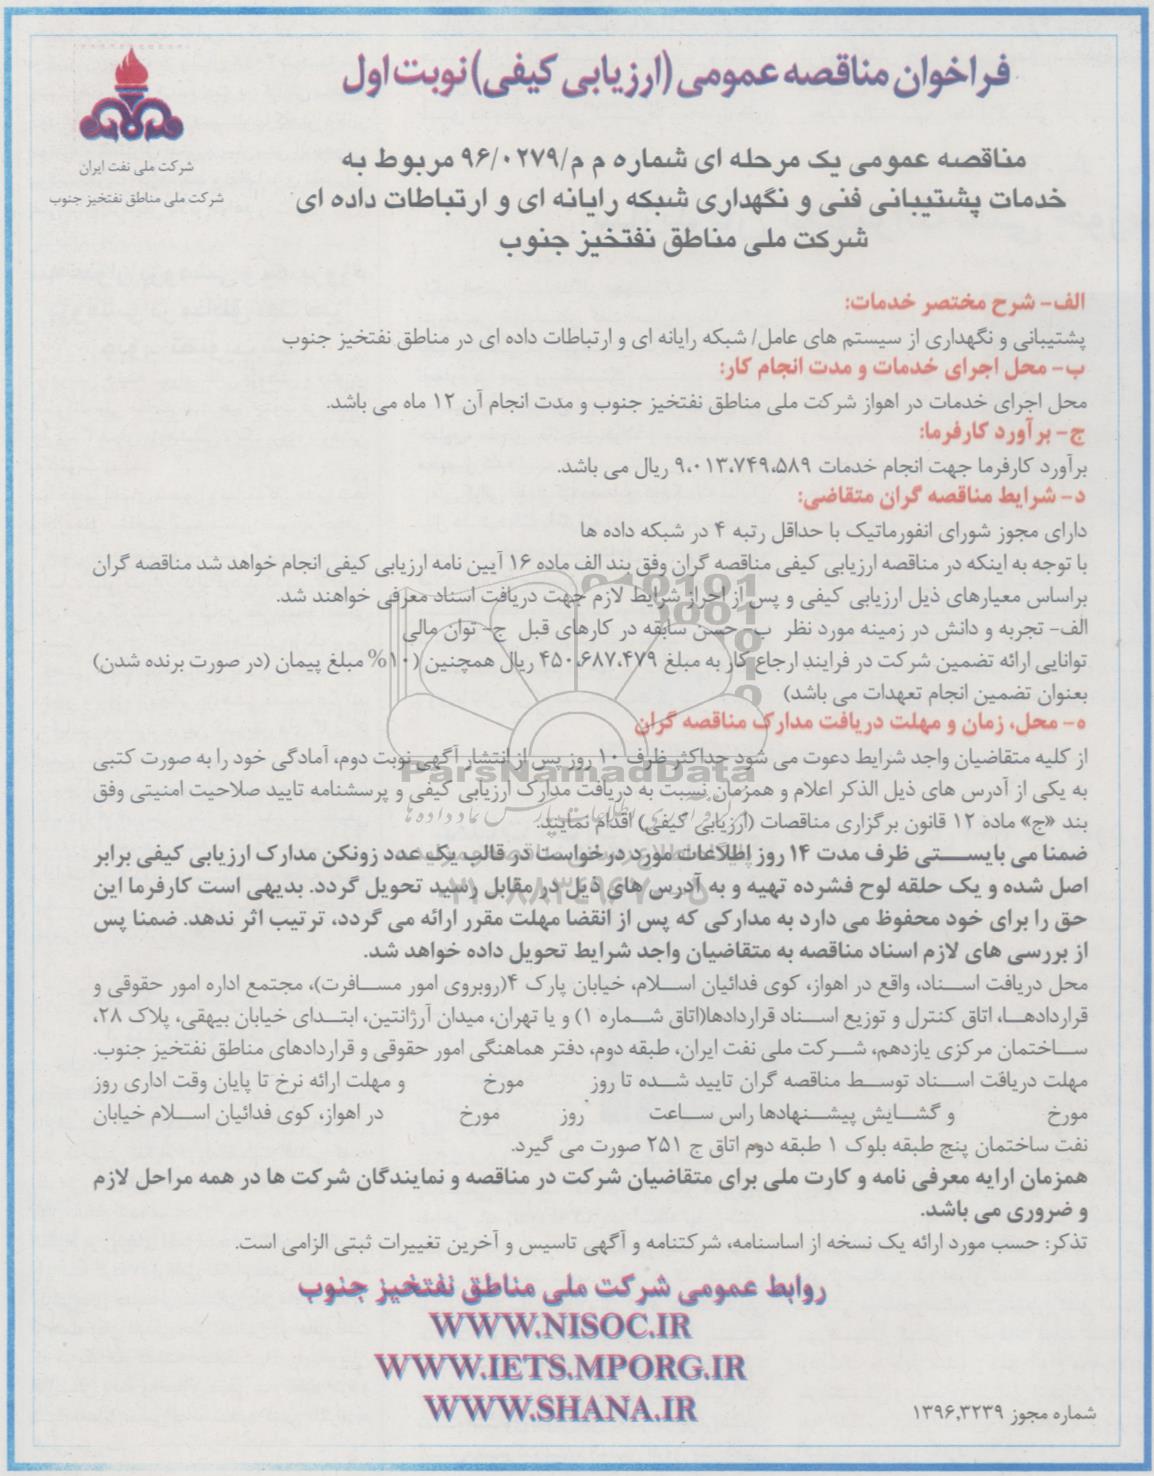 فراخوان مناقصه عمومی (ارزیابی کیفی) نوبت اول
شرکت ملی نفت ایران
شرکت ملی مناطق نفتخیز جنوب
مناقصه عمومی یک مرحله ای شماره م م/۹۶/۰۲۷۹ مربوط به
خدمات پشتیبانی فنی و نگهداری شبکه رایانه ای و ارتباطات داده ای
شرکت ملی مناطق نفتخیز جنوب
الف- شرح مختصر خدمات:
پشتیبانی و نگهداری از سیستم های عامل/ شبکه رایانه ای و ارتباطات داده ای در مناطق نفتخیز جنوب
ب- محل اجرای خدمات و مدت انجام کار:
محل اجرای خدمات در اهواز شرکت ملی مناطق نفتخیز جنوب و مدت انجام آن ۱۲ ماه می باشد.
ج- برآورد کارفرما:
برآورد کارفرما جهت انجام خدمات ۹،۰۱۳،۷۴۹،۵۸۹ ریال می باشد.
د- شرایط مناقصه گران متقاضی:
دارای مجوز شورای انفورماتیک با حداقل رتبه ۴ در شبکه داده ها
با توجه به اینکه در مناقصه ارزیابی کیفی مناقصه گران وفق بند الف ماده ۱۶ آیین نامه ارزیابی کیفی انجام خواهد شد مناقصه گران
براساس معیارهای ذیل ارزیابی کیفی و پس از احراز شرایط لازم جهت دریافت اسناد معرفی خواهند شد.
الف- تجربه و دانش در زمینه مورد نظر ب- حسن سابقه در کارهای قبل ج- توان مالی
توانایی ارائه تضمین شرکت در فرایند ارجاع کار به مبلغ ۴۵۰،۶۸۷،۴۷۹ ریال همچنین (۱۰% مبلغ پیمان (در صورت برنده شدن)
بعنوان تضمین انجام تعهدات می باشد)
ه- محل، زمان و مهلت دریافت مدارک مناقصه گران
از کلیه متقاضیان واجد شرایط دعوت می شود حداکثر ظرف ۱۰ روز پس از انتشار آگهی نوبت دوم، آمادگی خود را به صورت کتبی
به یکی از آدرس های ذیل الذکر اعلام و همزمان نسبت به دریافت مدارک ارزیابی کیفی و پرسشنامه تایید صلاحیت امنیتی وفق
بند «ج» ماده ۱۲ قانون برگزاری مناقصات (ارزیابی کیفی) اقدام نمایند.
ضمنا می بایستی ظرف مدت ۱۴ روز اطلاعات مورد درخواست در قالب یک عدد زونکن مدارک ارزیابی کیفی برابر
اصل شده و یک حلقه لوح فشرده تهیه و به آدرس های ذیل در مقابل رسید تحویل گردد. بدیهی است کارفرما این
حق را برای خود محفوظ می دارد به مدارکی که پس از انقضا مهلت مقرر ارائه می گردد، ترتیب اثر ندهد. ضمنا پس
از بررسی های لازم اسناد مناقصه به متقاضیان واجد شرایط تحویل داده خواهد شد.
محل دریافت اسناد، واقع در اهواز، کوی فدائیان اسلام، خیابان پارک ۴(روبروی امور مسافرت)، مجتمع اداره امور حقوقی و
قراردادها، اتاق کنترل و توزیع اسناد قراردادها(اتاق شماره ۱) و یا تهران، میدان آرژانتین، ابتدای خیابان بیهقی، پلاک ۲۸،
ساختمان مرکزی یازدهم، شرکت ملی نفت ایران، طبقه دوم، دفتر هماهنگی امور حقوقی و قراردادهای مناطق نفتخیز جنوب.
مهلت دریافت اسناد توسط مناقصه گران تایید شده تا روز مورخ و مهلت ارائه نرخ تا پایان وقت اداری روز
مورخ و گشایش پیشنهادها راس ساعت روز مورخ در اهواز، کوی فدائیان اسلام خیابان
نفت ساختمان پنج طبقه بلوک ۱ طبقه دوم اتاق ج ۲۵۱ صورت می گیرد.
همزمان ارایه معرفی نامه و کارت ملی برای متقاضیان شرکت در مناقصه و نمایندگان شرکت ها در همه مراحل لازم
و ضروری می باشد.
تذکر: حسب مورد ارائه یک نسخه از اساسنامه، شرکتنامه و آگهی تاسیس و آخرین تغییرات ثبتی الزامی است.
روابط عمومی شرکت ملی مناطق نفتخیز جنوب
WWW.NISOC.IR
WWW.IETS.MPORG.IR
WWW.SHANA.IR
شماره مجوز ۱۳۹۶,۳۲۳۹
ParsNamadData